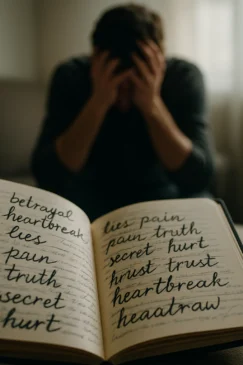 betrayal
heartbreak
lies
pain
truth
secret
hurt
lies pain
pain truth
secret hurt
hrust trust
heartbreak
heaatraw